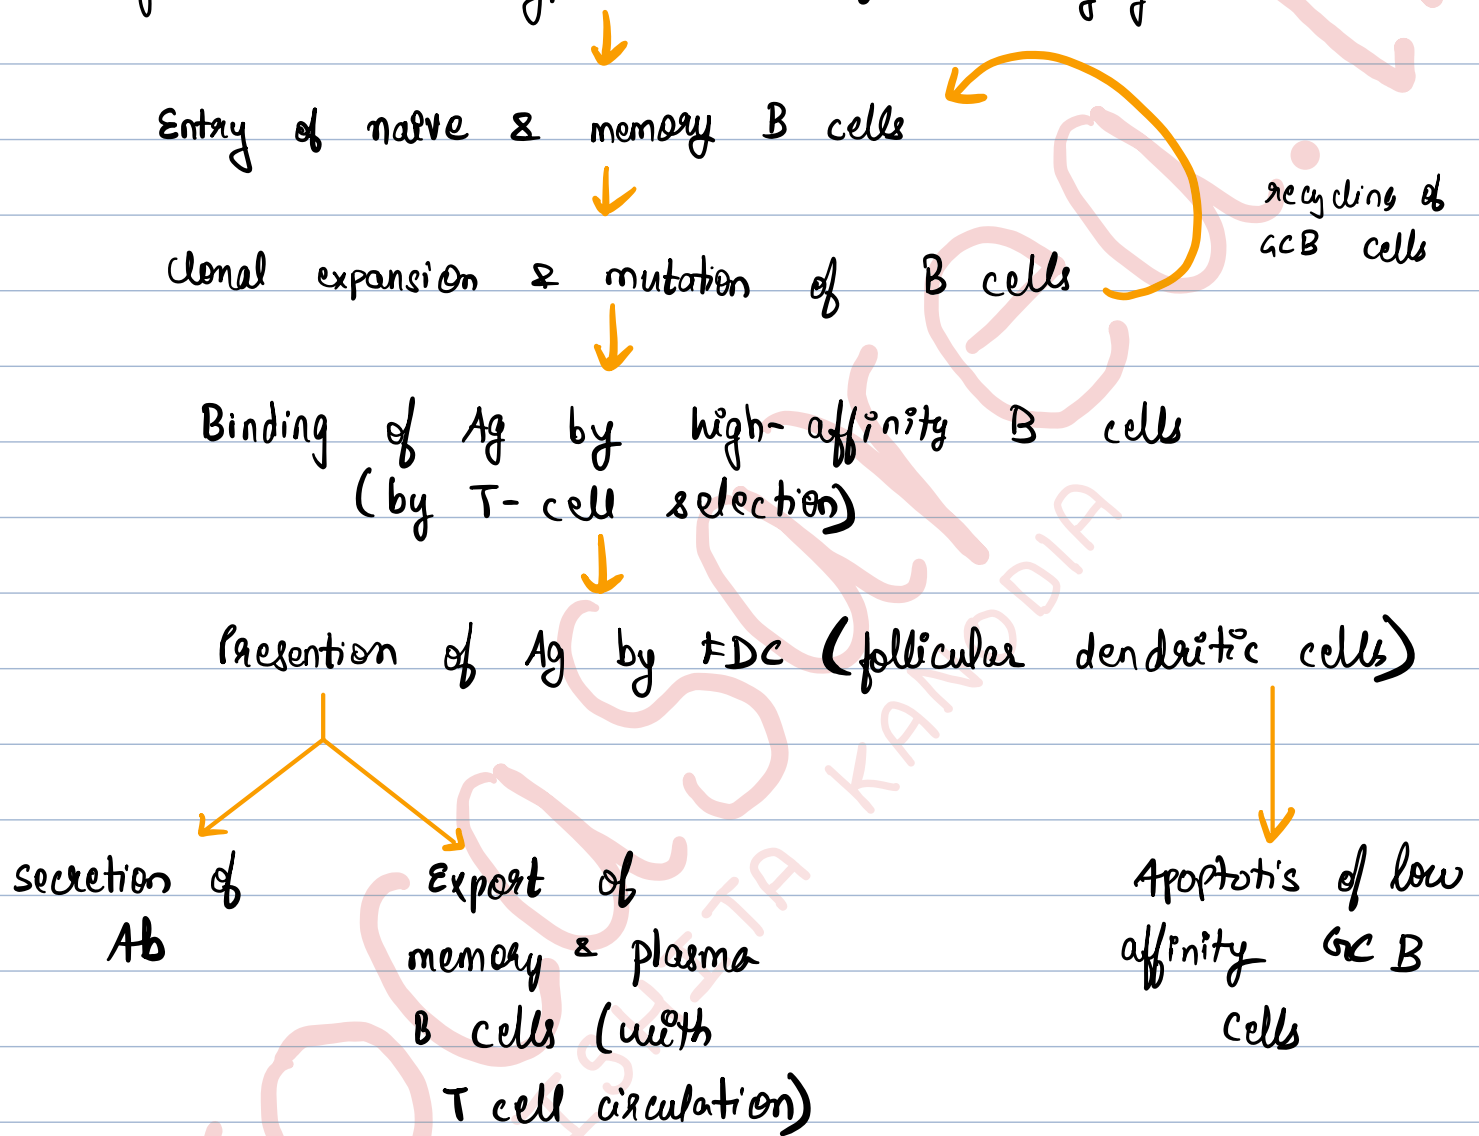 Entry of naive & memory B cells
recycling of
GCB cells
Clonal expansion & mutation of B cells
Binding of Ag by high-affinity B cells
(by T-cell selection)
Presention of Ag by FDC (follicular dendritic cells)
secretion of
Ab
Export of
memory & plasma
B cells (with
T cell circulation)
Apoptotis of low
affinity GC B
cells
KANODIA